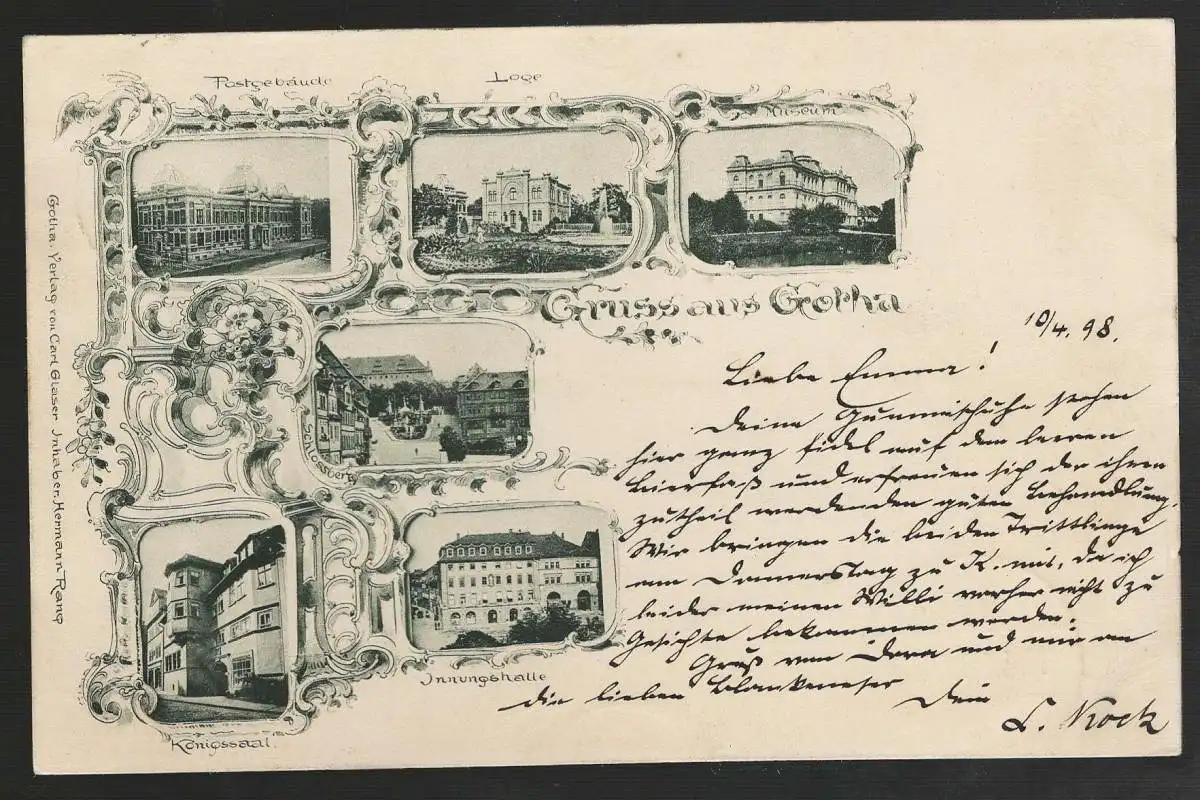 Postgebäude
Loge
Museum
Gruss aus Gotha
Schlossberg
Innungshalle
Königssaal.
Gotha, Verlag von Carl Glaser Inhaber Hermann Rang
10/4. 98.
Liebe Emma!
Deine Gummischuhe stehen
hier ganz fidel auf dem leeren
Bierfaß und erfreuen sich der ihnen
zutheil werdenden guten Behandlung.
Wir bringen die beiden Trittlinge
am Donnerstag zu K. mit, da ich
leider meinen Willi vorher nicht zu
Gesichte bekommen werde.
Gruß von Dora und mir an
die lieben Blankeneser Dein
L.